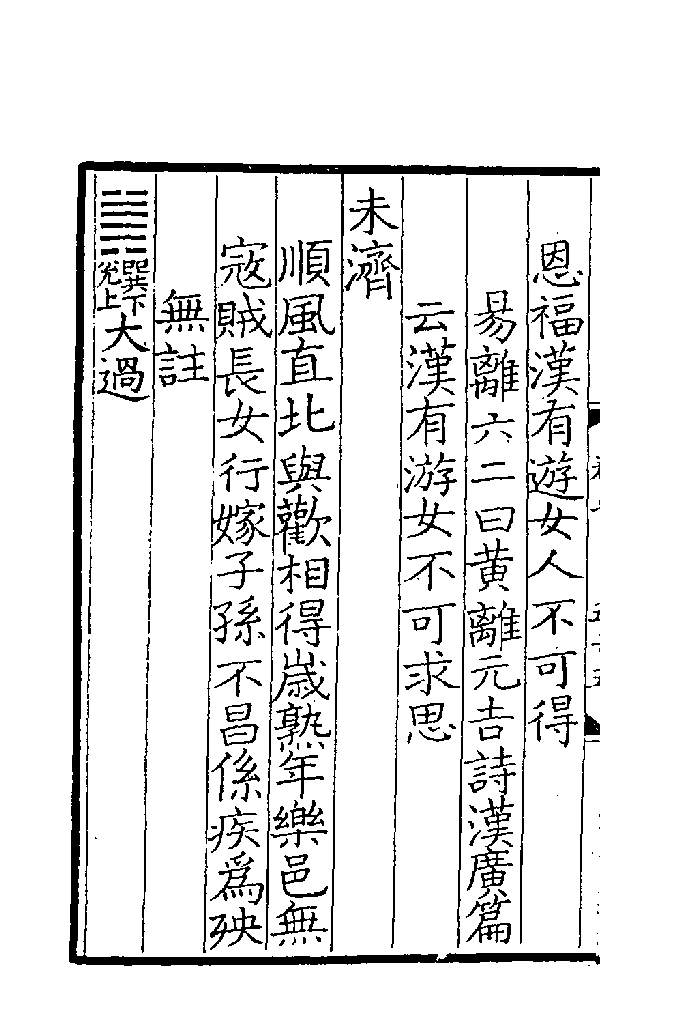 恩福漢有遊女人不可得
易離六二曰黄離元吉詩漢廣篇
云漢有游女不可求思
未濟
順風直北與歡相得歳熟年樂邑無
寇賊長女行嫁子孫不昌係疾爲殃
無註
巽下兊上大過